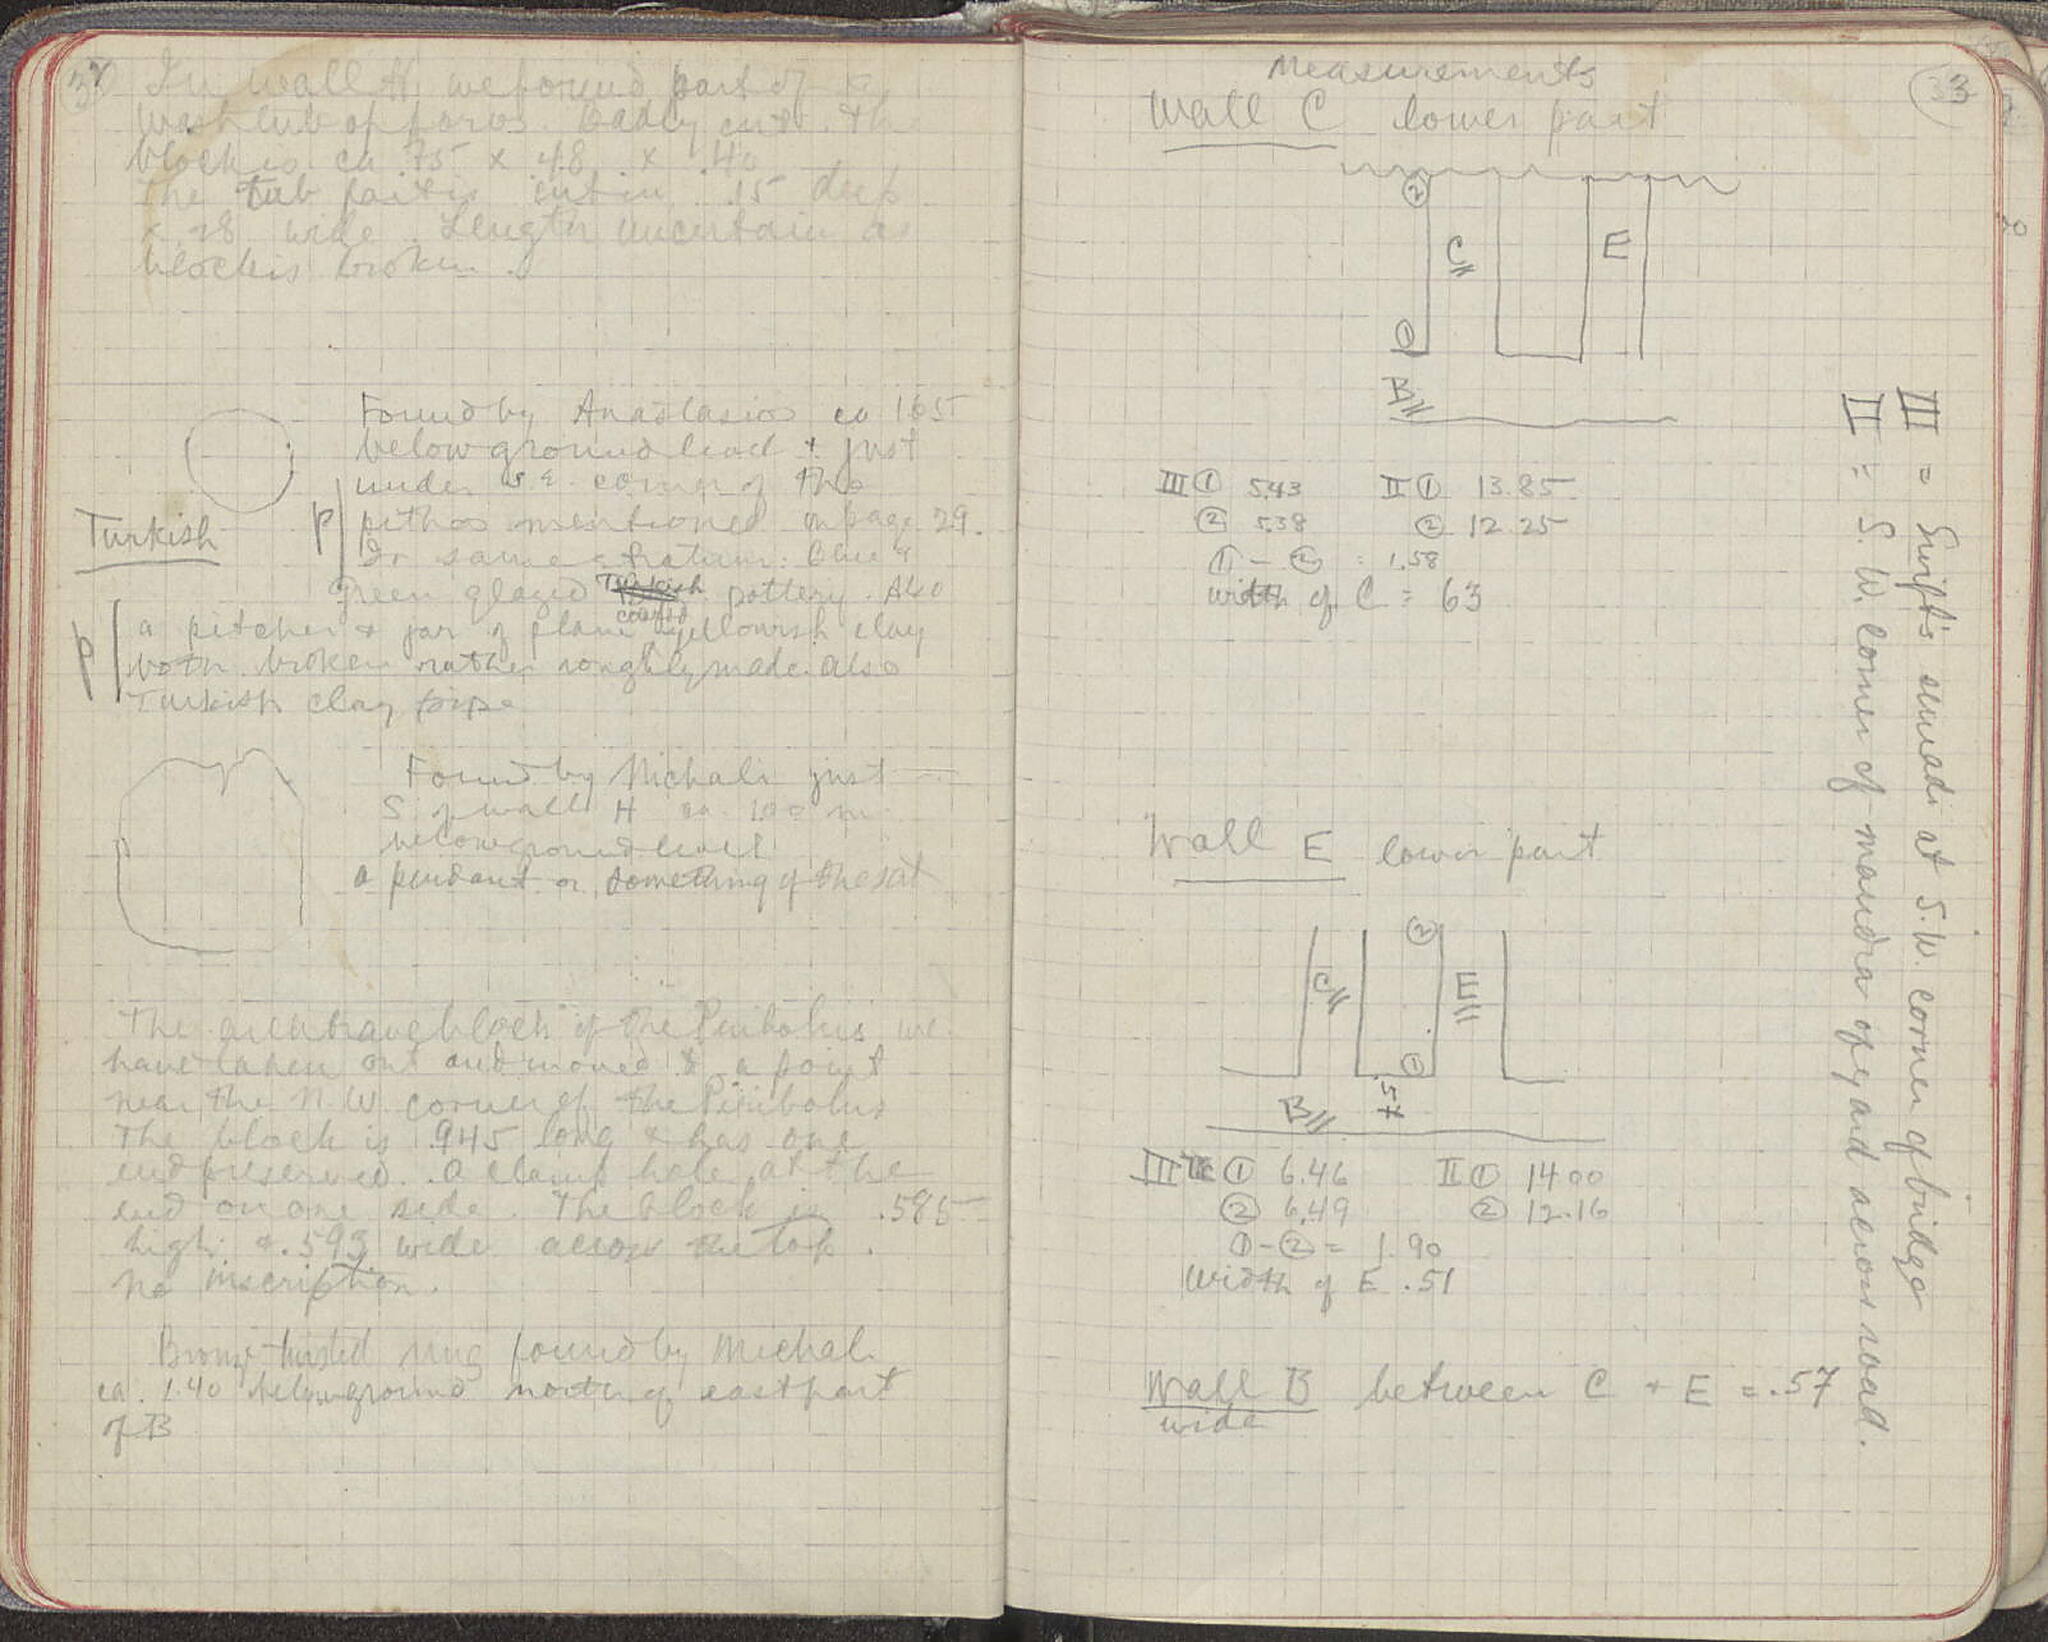 32
In wall H we found part of a
wash tub of poros. badly cut. The
block is ca .75 x .48 x .40
The tub part is cut in .15 deep
x .28 wide. Length uncertain as
block is broken.
Found by Anastasios ca 1.65
below ground level + just
under S.E. corner of the
Turkish
P
pithos mentioned on page 29.
In same stratum: blue +
green glazed Turkish pottery. Also
coarse
a pitcher + jar of plain yellowish clay
both broken rather roughly made. also
Turkish clay pipe
Found by Michali just
S of wall H ca. 1.00 m
below ground level
a pendant or something of the sort
The architrave block of the Peribolus we
have taken out and moved to a point
near the N.W. corner of the Peribolus
The block is .945 long + has one
end preserved. A clamp hole at the
end on one side. The block is .585
high + .593 wide across the top.
No inscription.
Bronze twisted ring found by Michali
ca. 1.40 below ground north of east part
of B
33
Measurements
Wall C lower part
②
C
E
①
B
III ① 5.43 II ① 13.85
② 5.38 ② 12.25
① - ② = 1.58
width of C = 63
Wall E lower part
②
C
E
①
.57
B
III ① 6.46 II ① 14.00
② 6.49 ② 12.16
① - ② = 1.90
Width of E .51
Wall B between C + E = .57
wide
III = Swift's simadi at S.W. corner of bridge
II = S.W. corner of mandra of yard across road.